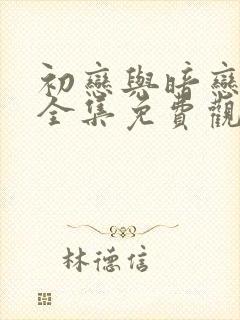 初戀與暗戀
全集免費觀
林德信